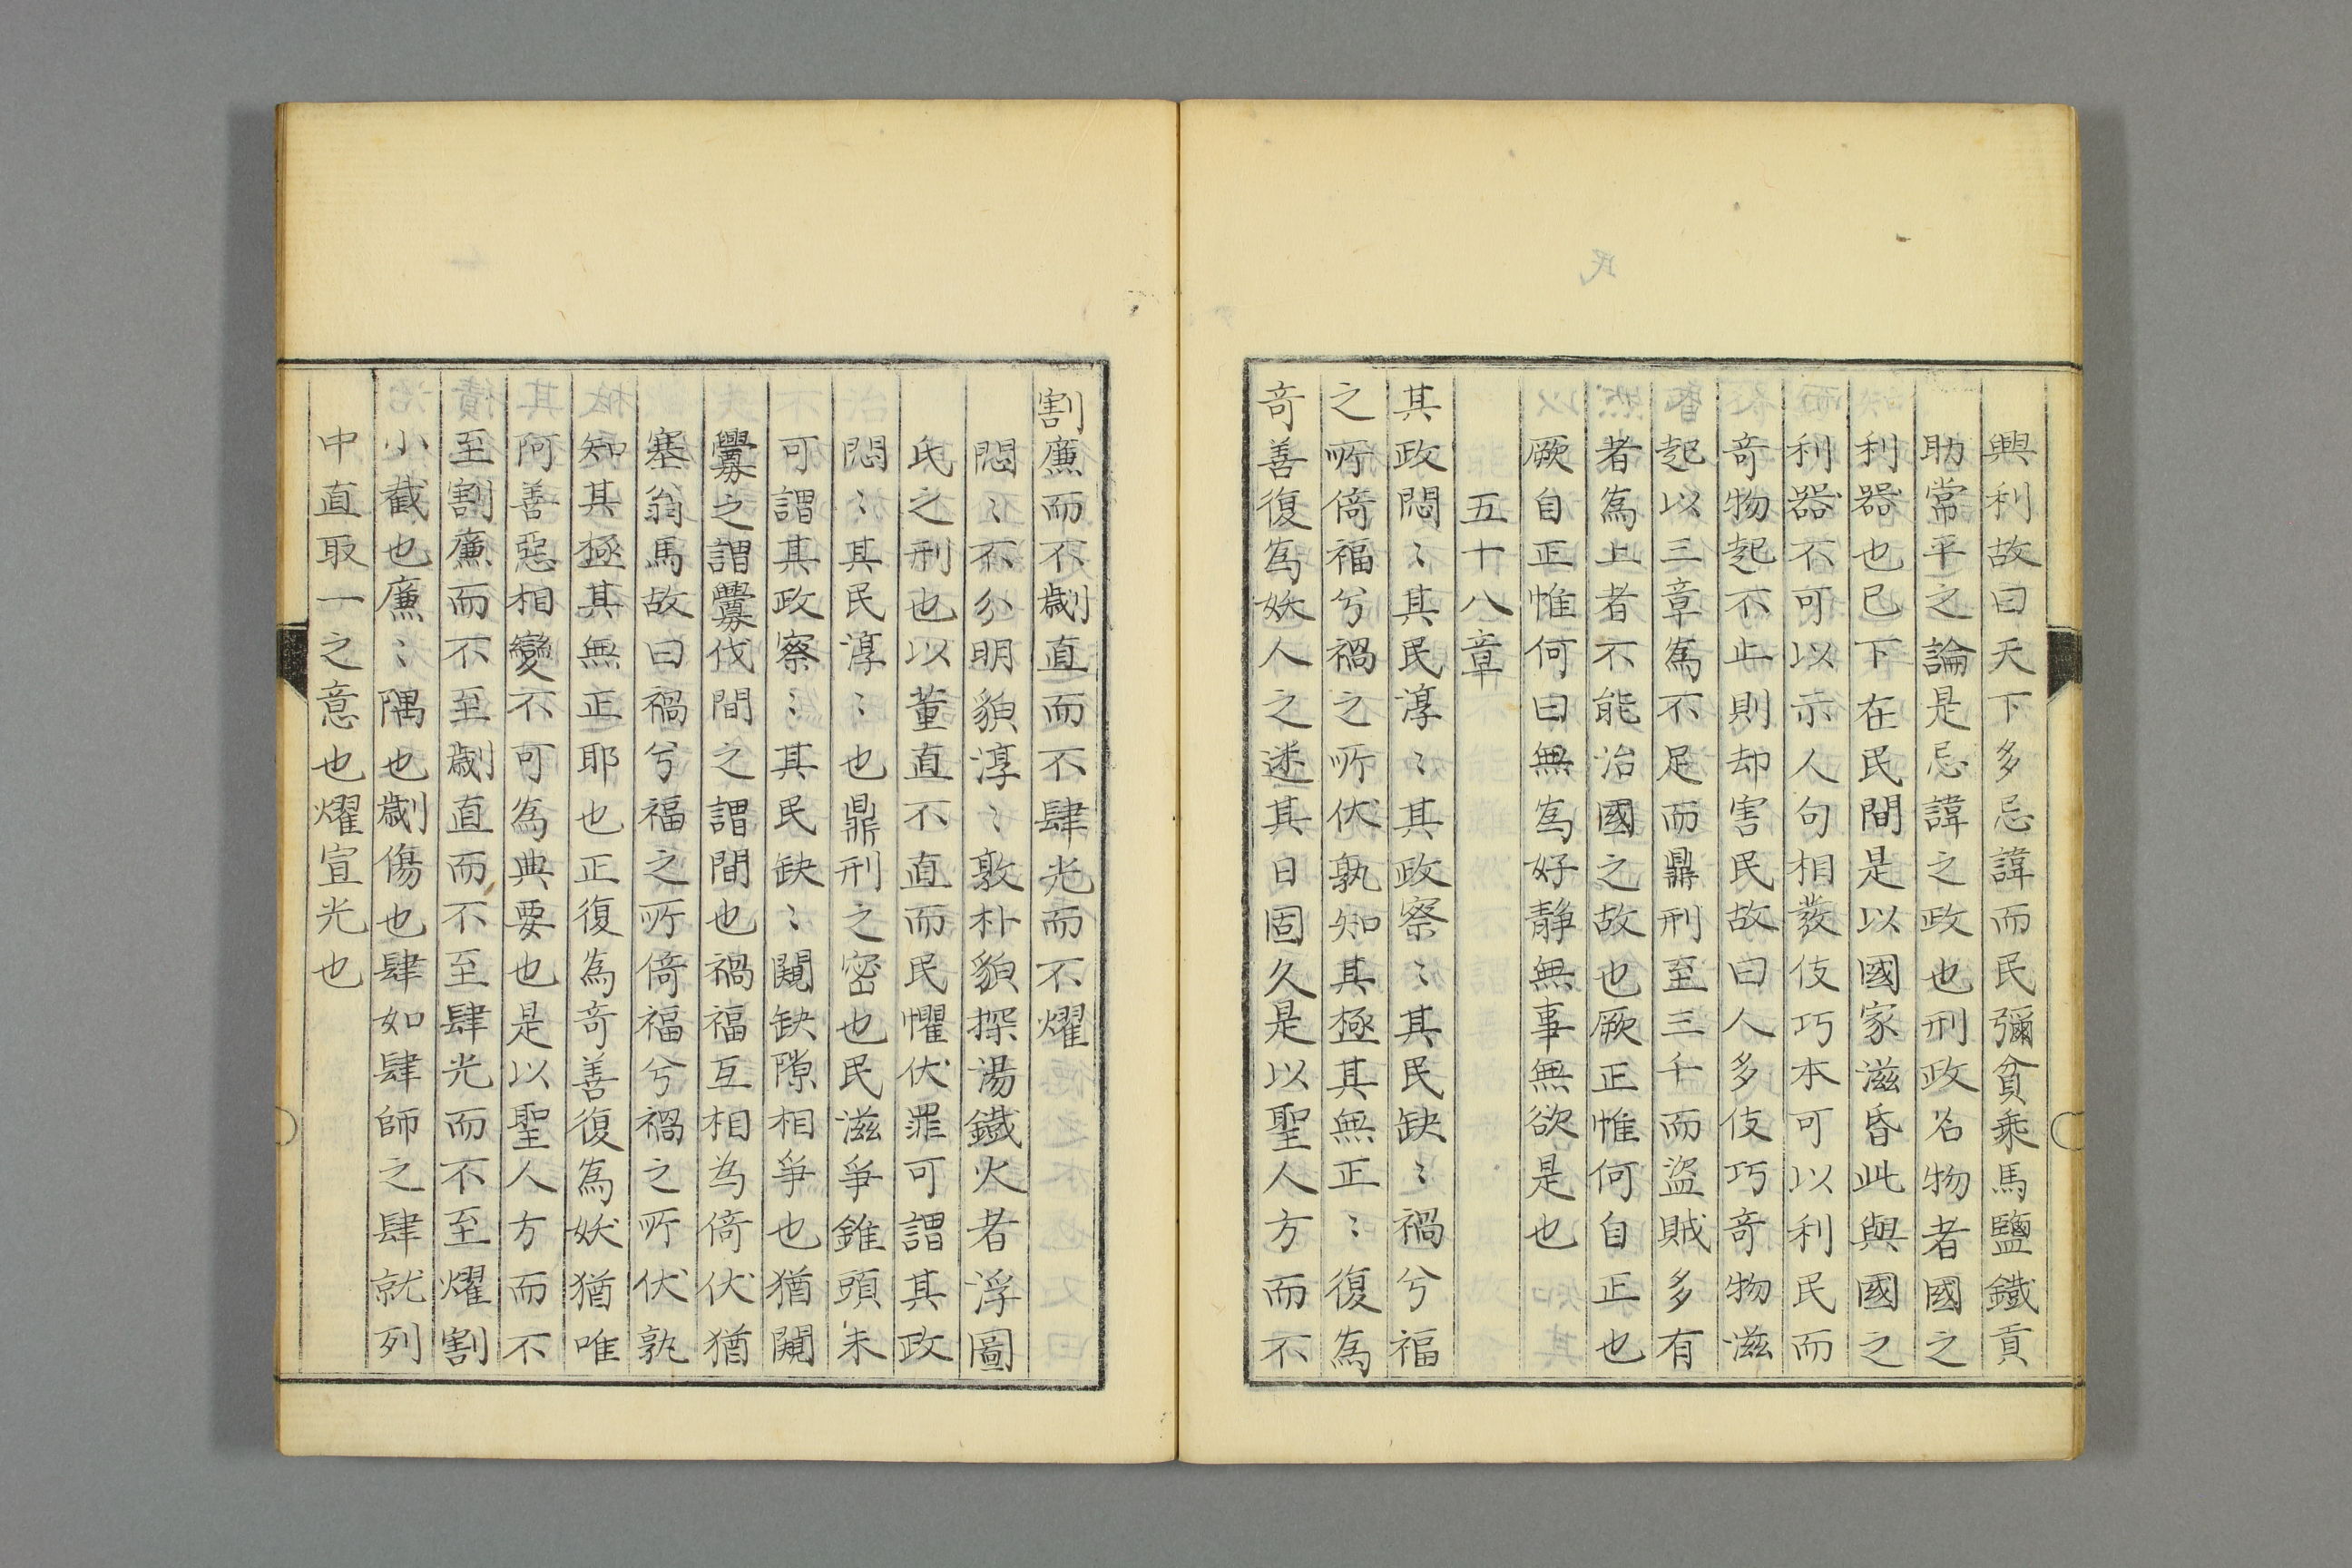 興利故曰天下多忌諱而民彌貧乘馬鹽鐵貢
助常平之論是忌諱之政也刑政名物者國之
利器也已下在民間是以國家滋昏此與國之
利器不可以示人句相發伎巧本可以利民而
奇物起不止則却害民故曰人多伎巧奇物滋
起以三章為不足而鼎刑至三千而盜賊多有
者為上者不能治國之故也厥正惟何自正也
厥自正惟何曰無為好靜無事無欲是也
五十八章
其政悶〻其民淳〻其政察〻其民缺〻禍兮福
之所倚福兮禍之所伏孰知其極其無正〻復為
奇善復為妖人之迷其日固久是以聖人方而不
割廉而不劌直而不肆光而不燿
悶〻不分明貌淳〻敦朴貌探湯鐵火者浮圖
氏之刑也以董直不直而民懼伏罪可謂其政
悶〻其民淳〻也鼎刑之密也民滋爭錐頭未
可謂其政察〻其民缺〻䦧缺隙相爭也猶䦧
釁之謂釁伐間之謂間也禍福互相為倚伏猶
塞翁馬故曰禍兮福之所倚福兮禍之所伏孰
知其極其無正耶也正復為奇善復為妖猶唯
阿善惡相變不可為典要也是以聖人方而不
至割廉而不至劌直而不至肆光而不至燿割
小截也廉〻隅也劌傷也肆如肆師之肆就列
中直取一之意也燿宣光也
民